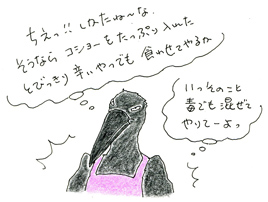 ちえっ!! しかたねーな.
そうなら コショーをたっぷり入れた
とびっきり 辛いやつでも 食わせてやるか
いっそのこと
毒でも混ぜて
やりてーよっ